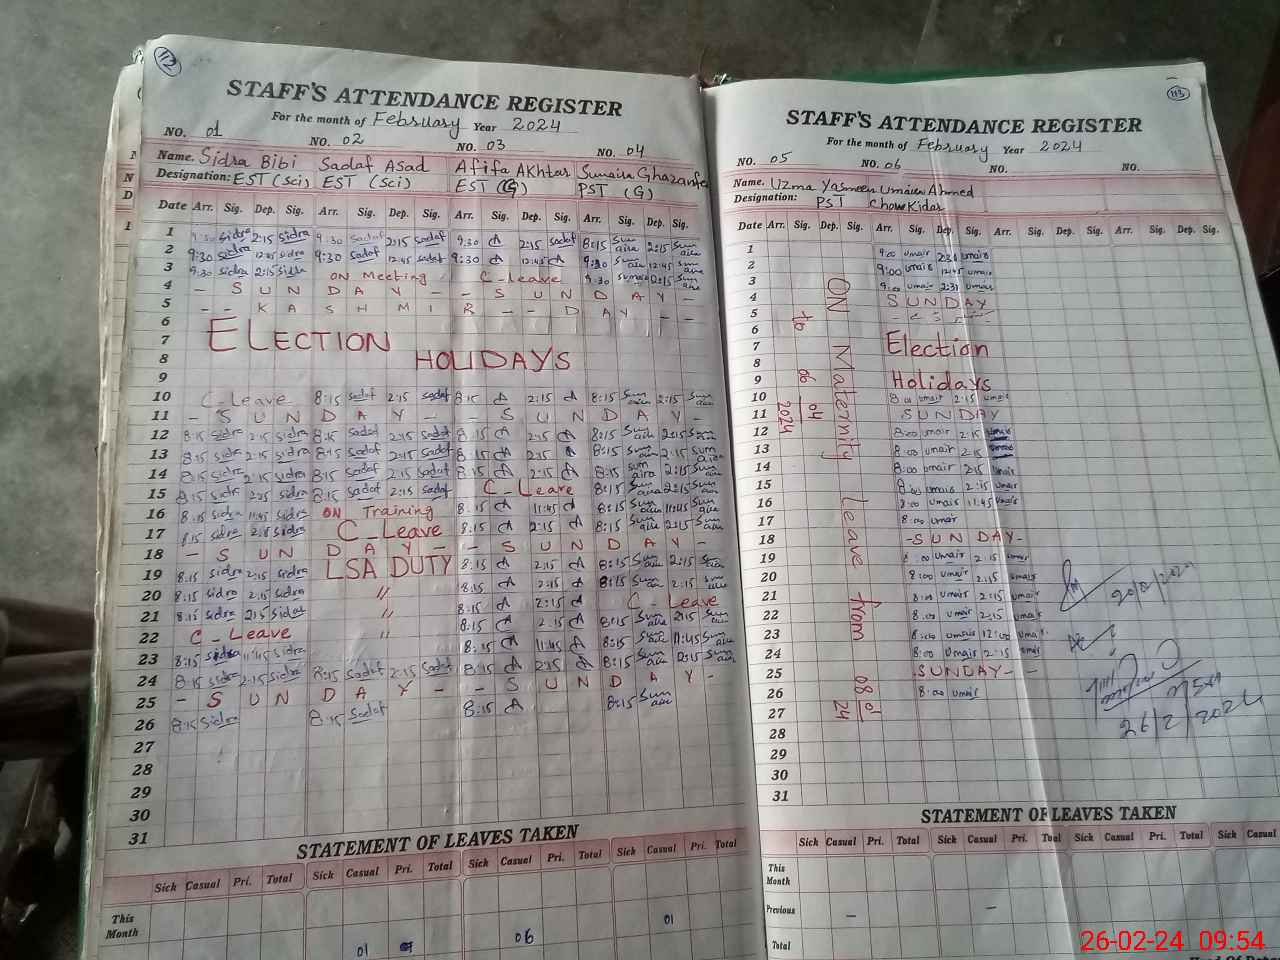 112
STAFF'S ATTENDANCE REGISTER
For the month of February Year 2024
NO. 01 NO. 02 NO. 03 NO. 04
Name. Sidra Bibi Sadaf Asad Afifa Akhtar Sumaira Ghazanfe
Designation: EST (Sci) EST (Sci) EST (G) PST (G)
Date Arr. Sig. Dep. Sig. Arr. Sig. Dep. Sig. Arr. Sig. Dep. Sig. Arr. Sig. Dep. Sig.
1 9:30 Sidra 2:15 Sidra 9:30 Sadaf 2:15 Sadaf 9:30 2:15 Sadaf 8:15 Sumaira 2:15 Sumaira
2 9:30 Sidra 12:45 Sidra 9:30 Sadaf 12:45 Sadaf 9:30 12:45 9:30 Sumaira 12:45 Sumaira
3 9:30 Sidra 2:15 Sidra ON Meeting C-leave 9:30 Sumaira 2:15 Sumaira
4 - S U N D A Y - - S U N D A Y -
5 - - K A S H M I R - - D A Y - -
6
7 ELECTION
8 HOLIDAYS
9
10 C-Leave 8:15 Sadaf 2:15 Sadaf 8:15 2:15 8:15 Sumaira 2:15 Sumaira
11 - S U N D A Y - - S U N D A Y -
12 8:15 Sidra 2:15 Sidra 8:15 Sadaf 2:15 Sadaf 8:15 2:15 8:15 Sumaira 2:15 Sumaira
13 8:15 Sidra 2:15 Sidra 8:15 Sadaf 2:15 Sadaf 8:15 2:15 8:15 Sumaira 2:15 Sumaira
14 8:15 Sidra 2:15 Sidra 8:15 Sadaf 2:15 Sadaf 8:15 2:15 8:15 Sumaira 2:15 Sumaira
15 8:15 Sidra 2:15 Sidra 8:15 Sadaf 2:15 Sadaf C-Leave 8:15 Sumaira 2:15 Sumaira
16 8:15 Sidra 11:45 Sidra ON Training 8:15 11:45 8:15 Sumaira 11:45 Sumaira
17 8:15 Sidra 2:15 Sidra C-Leave 8:15 2:15 8:15 Sumaira 2:15 Sumaira
18 - S U N D A Y - - S U N D A Y -
19 8:15 Sidra 2:15 Sidra LSA DUTY 8:15 2:15 8:15 Sumaira 2:15 Sumaira
20 8:15 Sidra 2:15 Sidra " 8:15 2:15 8:15 Sumaira 2:15 Sumaira
21 8:15 Sidra 2:15 Sidra " 8:15 2:15 C-Leave
22 C-Leave " 8:15 2:15 8:15 Sumaira 2:15 Sumaira
23 8:15 Sidra 11:45 Sidra 8:15 11:45 8:15 Sumaira 11:45 Sumaira
24 8:15 Sidra 2:15 Sidra 8:15 Sadaf 2:15 Sadaf 8:15 2:15 8:15 Sumaira 2:15 Sumaira
25 - S U N D A Y - - S U N D A Y -
26 8:15 Sidra 8:15 Sadaf 8:15 8:15 Sumaira
27
28
29
30
31
STATEMENT OF LEAVES TAKEN
Sick Casual Pri. Total Sick Casual Pri. Total Sick Casual Pri. Total
This Month
01 06 01
113
STAFF'S ATTENDANCE REGISTER
For the month of February Year 2024
NO. 05 NO. 06 NO. NO.
Name. Uzma Yasmeen Umair Ahmed
Designation: PST Chowkidar
Date Arr. Sig. Dep. Sig. Arr. Sig. Dep. Sig. Arr. Sig. Dep. Sig. Arr. Sig. Dep. Sig.
ON Maternity Leave from 08 01 24
to 06 04 2024
1 9:00 umair 2:31 umair
2 9:00 umair 12:45 umair
3 9:00 umair 2:31 umair
4 S U N D A Y
5
6
7 Election
8
9 Holidays
10 8:00 umair 2:15 umair
11 S U N D A Y
12 8:00 umair 2:15 umair
13 8:00 umair 2:15 umair
14 8:00 umair 2:15 umair
15 8:00 umair 2:15 umair
16 8:00 umair 11:45 umair
17 8:00 umair
18 -S U N D A Y-
19 8:00 umair 2:15 umair
20 8:00 umair 2:15 umair
21 8:00 umair 2:15 umair
22 8:00 umair 2:15 umair
23 8:00 umair 12:00 umair
24 8:00 umair 2:15 umair
25 SUNDAY- -
26 8:00 umair
27
28
29
30
31
26/2/2024
STATEMENT OF LEAVES TAKEN
Sick Casual Pri. Total Sick Casual Pri. Total Sick Casual Pri. Total Sick Casual
This Month
Previous - -
Total
26-02-24 09:54